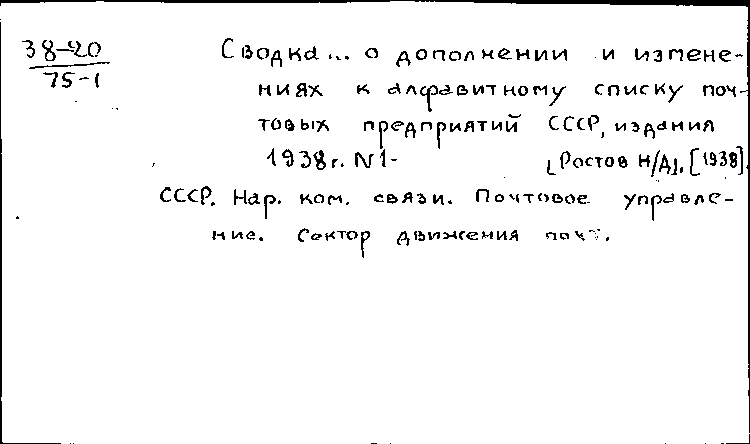 38-20
75-1
Сводка... о дополнении и измене-
ниях к алфавитному списку поч-
товых предприятий СССР, издания
1938г. N1- [Ростов н/Д], [1938].
СССР. Нар. ком. связи. Почтовое управле-
ние. Сектор движения почт.